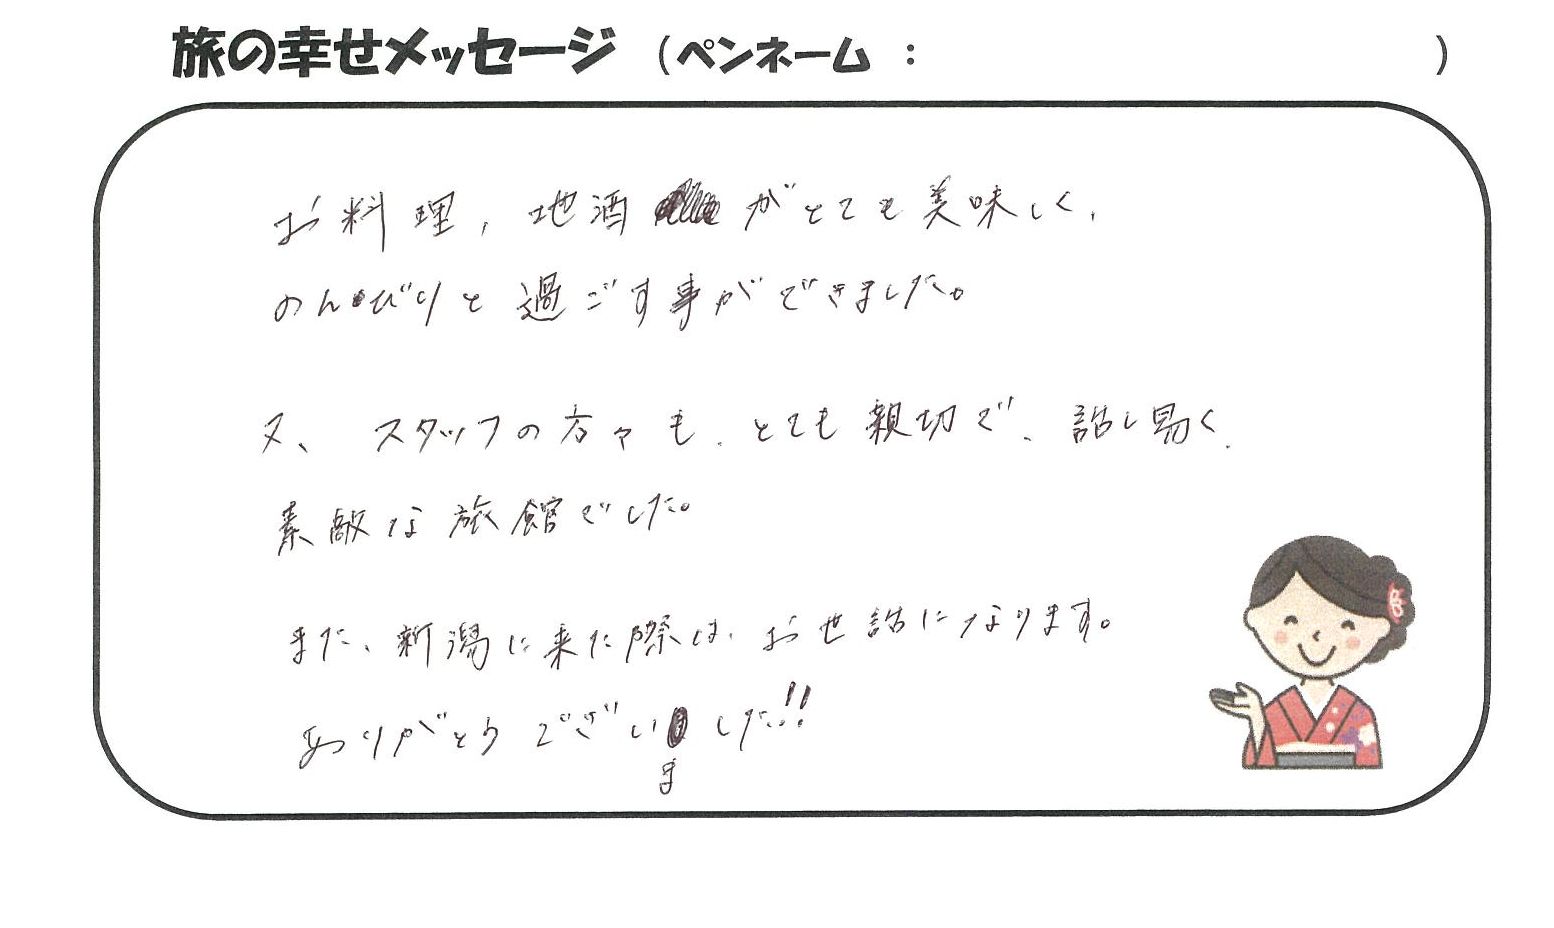 旅の幸せメッセージ （ペンネーム ： ）
お料理、地酒がとても美味しく、
のんびりと過ごす事ができました。
又、スタッフの方々も、とても親切で、話し易く、
素敵な旅館でした。
また、新潟に来た際は、お世話になります。
ありがとうございました!!